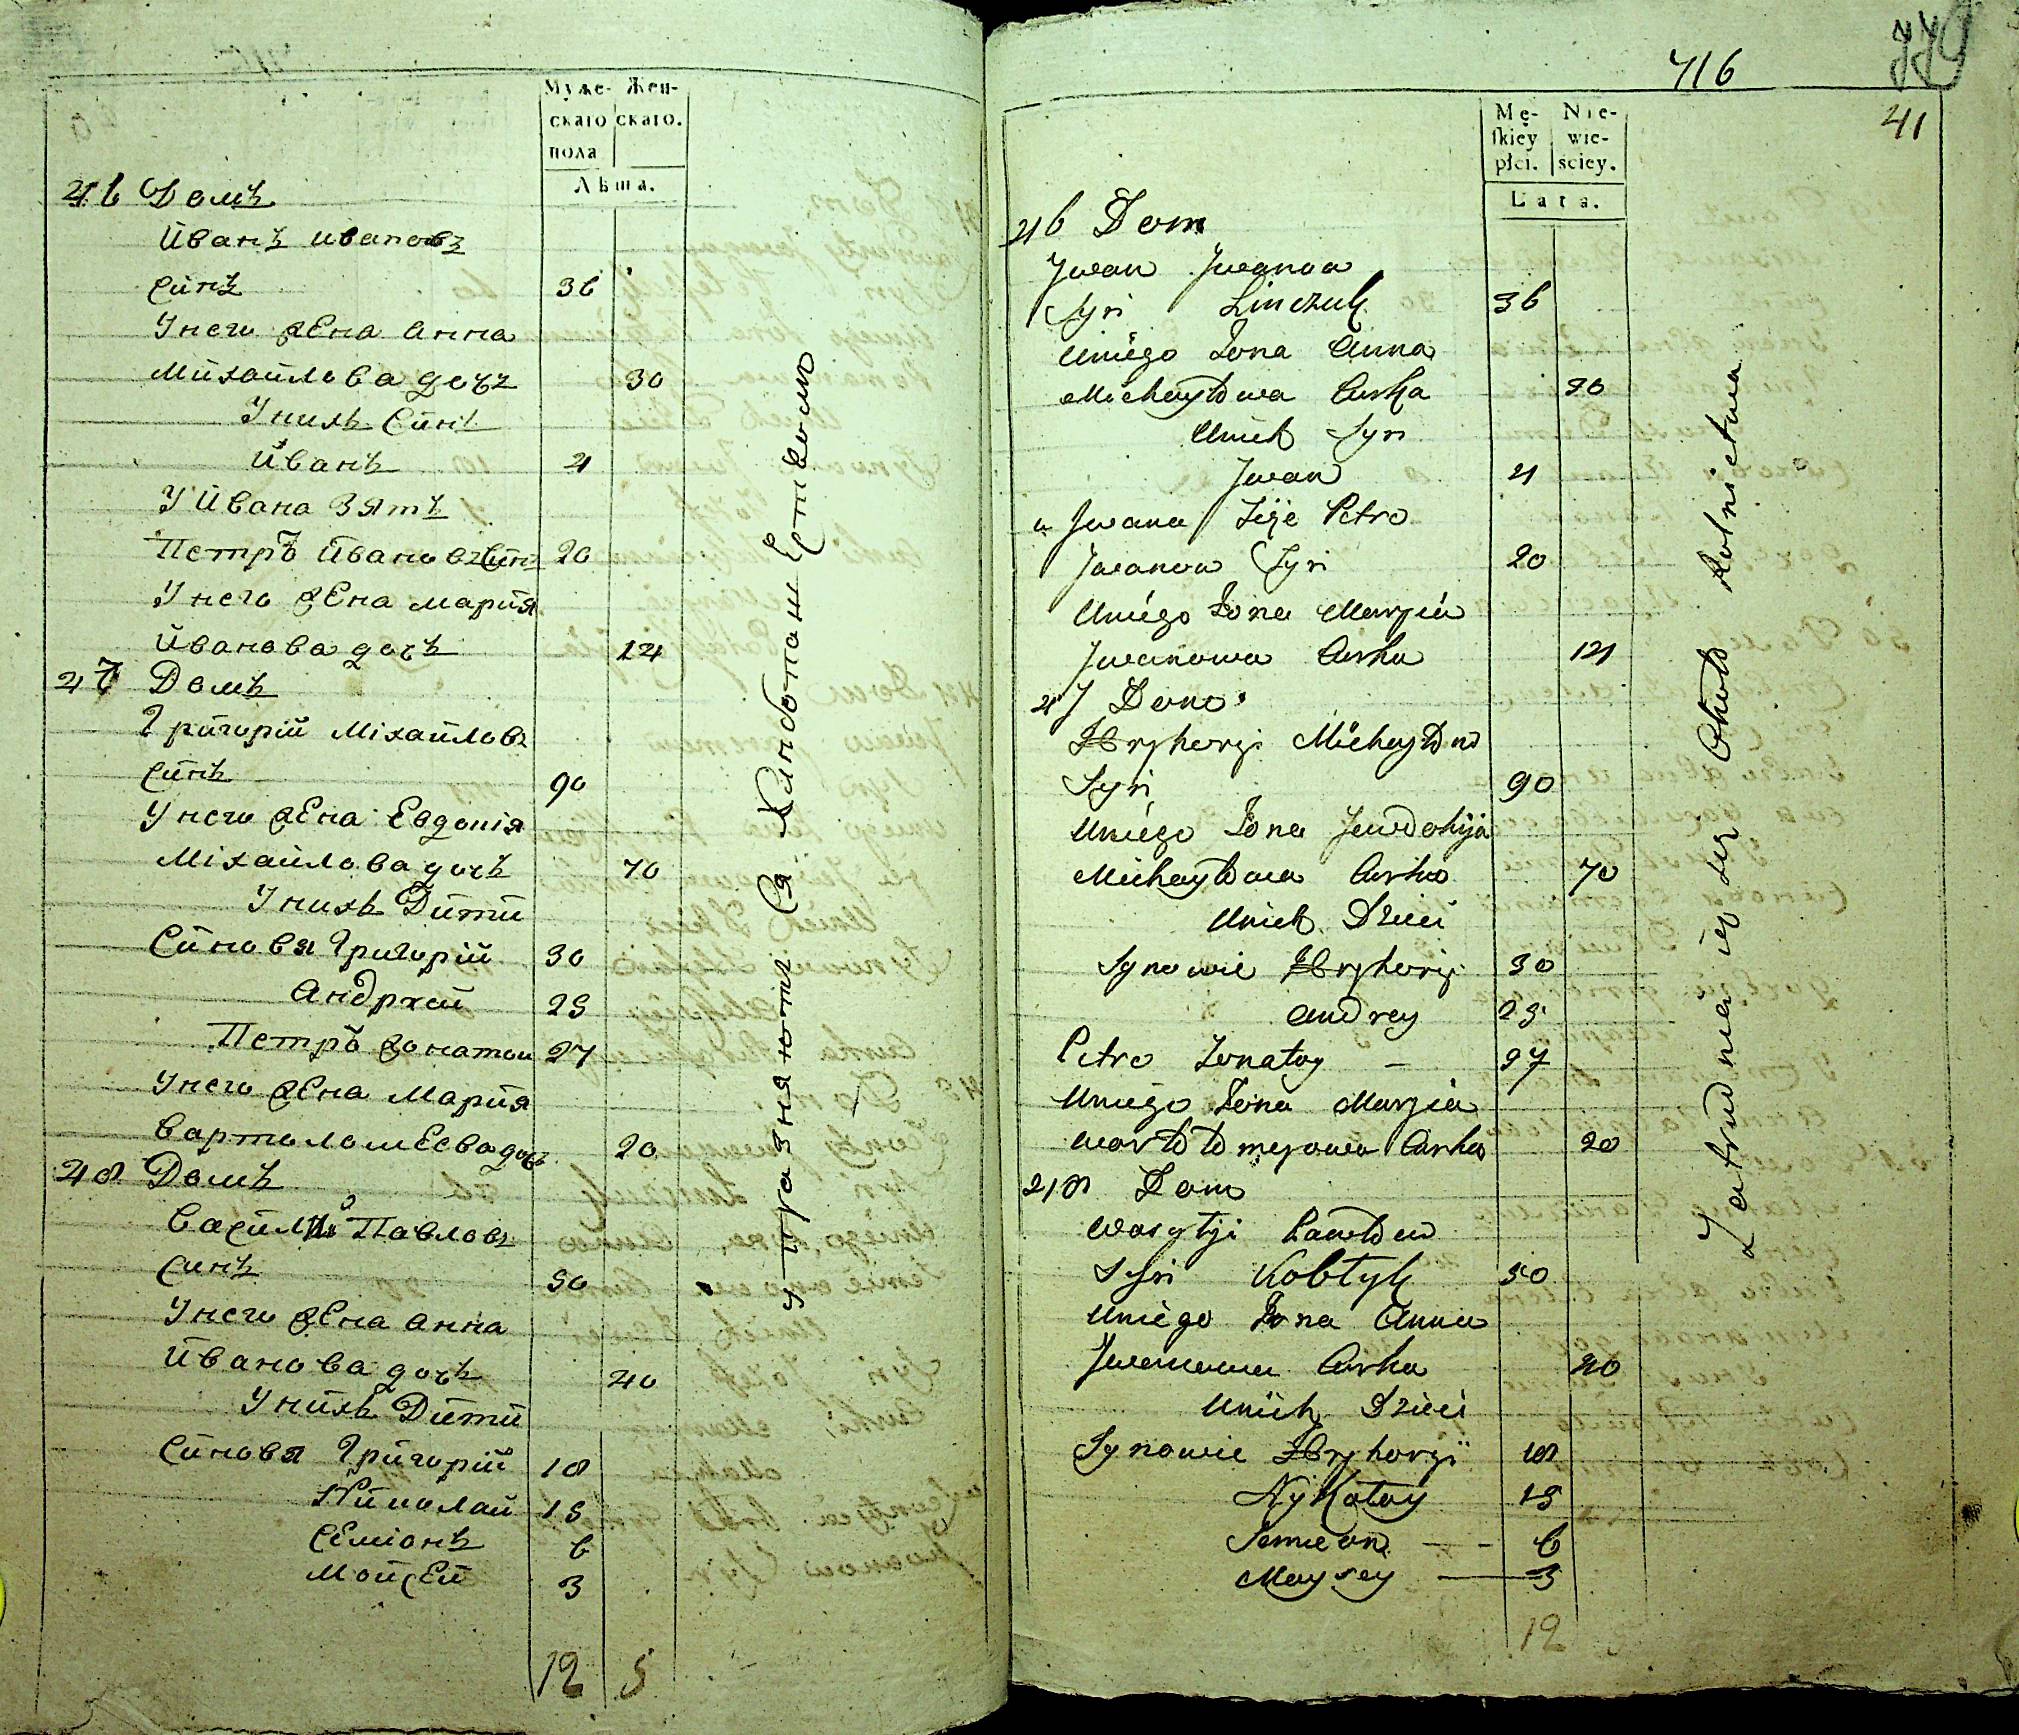 Муже- Жен-
скаго скаго.
пола
Лѣта.
46 Домъ
Иванъ ивановъ
Синъ 36
У него жена анна
Михайлова дочъ 30
У нихъ Синъ
Иванъ 4
У ивана Зятъ
Петръ ивановъ Синъ 20
У него жена мария
иванова дочъ 14
47 Домъ
Григорий Міхайловъ
Синъ 90
У него жена Евдокія
Міхайлова дочъ 70
У нихъ Дити
Синовя Григорій 30
Андрей 25
Петръ жонатои 27
У него жена Мария
вартоломеева дочъ 20
48 Домъ
Васили Павловъ
Синъ 50
У него жена анна
иванова дочъ 40
У нихъ Дити
Синовя Григорий 18
Николай 15
Семіонъ 6
Мойсей 3
12 5
упражняются Ся Хлѣбопашествомъ
716
41
Mę- Nie-
ſkiey wie-
płci. ściey.
Lata.
46 Dom
Jwan Jwanow
Syn Linczuk 36
Uniego Żona Anna
Michayłowa Curka 30
Unich Syn
Jwan 4
u Jwana Zięc Petro
Jwanow Syn 20
Uniego Żona Maryia
Jwanowa Curka 14
47 Dom
Hryhoryi Michayłow
Syn 90
Uniego Żona Jewdokija
Michayłowa Curka 70
Unich Dzieci
Synowie Hryhoryi 30
Andrey 25
Petro Żonatoy – 27
Uniego Żona Maryia
Wartołomeyowa Curka 20
48 Dom
Wasylyi Pawłow
Syn Kobłyk 50
Uniego Żona Anna
Jwanowa Curka 40
Unich Dzieci
Synowie Hryhoryi 18
Nykołay 15
Semeon — - 6
Moysey — 3
12
Zatrudniaią się Około Rolnictwa